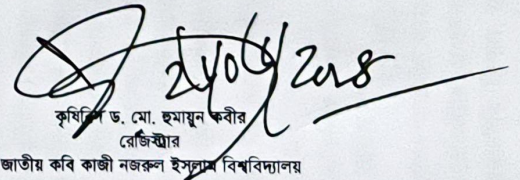 কৃষিবিদ ড. মো. হুমায়ুন কবীর
রেজিস্ট্রার
জাতীয় কবি কাজী নজরুল ইসলাম বিশ্ববিদ্যালয়